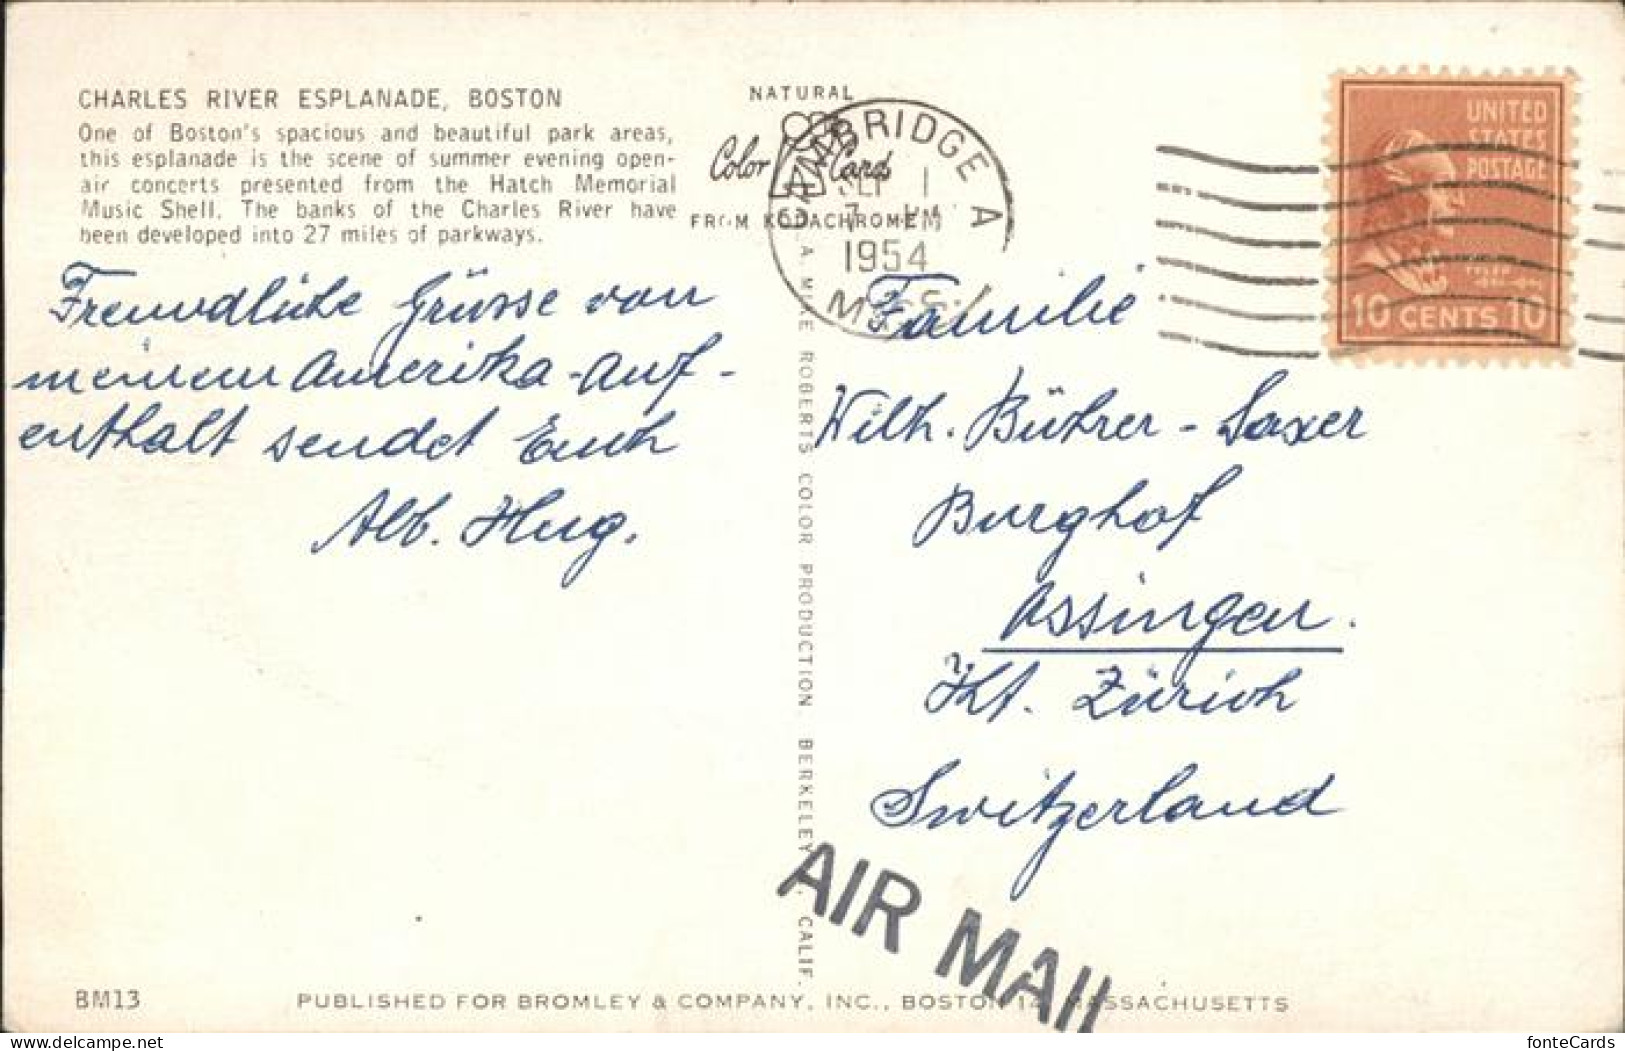 CHARLES RIVER ESPLANADE, BOSTON
One of Boston's spacious and beautiful park areas,
this esplanade is the scene of summer evening open-
air concerts presented from the Hatch Memorial
Music Shell. The banks of the Charles River have
been developed into 27 miles of parkways.
Freundliche Grüsse von
meinem Amerika-Auf-
enthalt sendet Euch
Alb. Hug.
BM13
NATURAL
Color Card
FROM KODACHROME
CAMBRIDGE A
SEP 1
7 PM
1954
MASS.
A MIKE ROBERTS COLOR PRODUCTION BERKELEY, CALIF.
UNITED
STATES
POSTAGE
10 CENTS 10
Familie
Wilh. Bührer-Saxer
Burghof
Ossingen.
Kt. Zürich
Switzerland
AIR MAIL
PUBLISHED FOR BROMLEY & COMPANY, INC., BOSTON 14, MASSACHUSETTS
delcampe.net
fonteCards